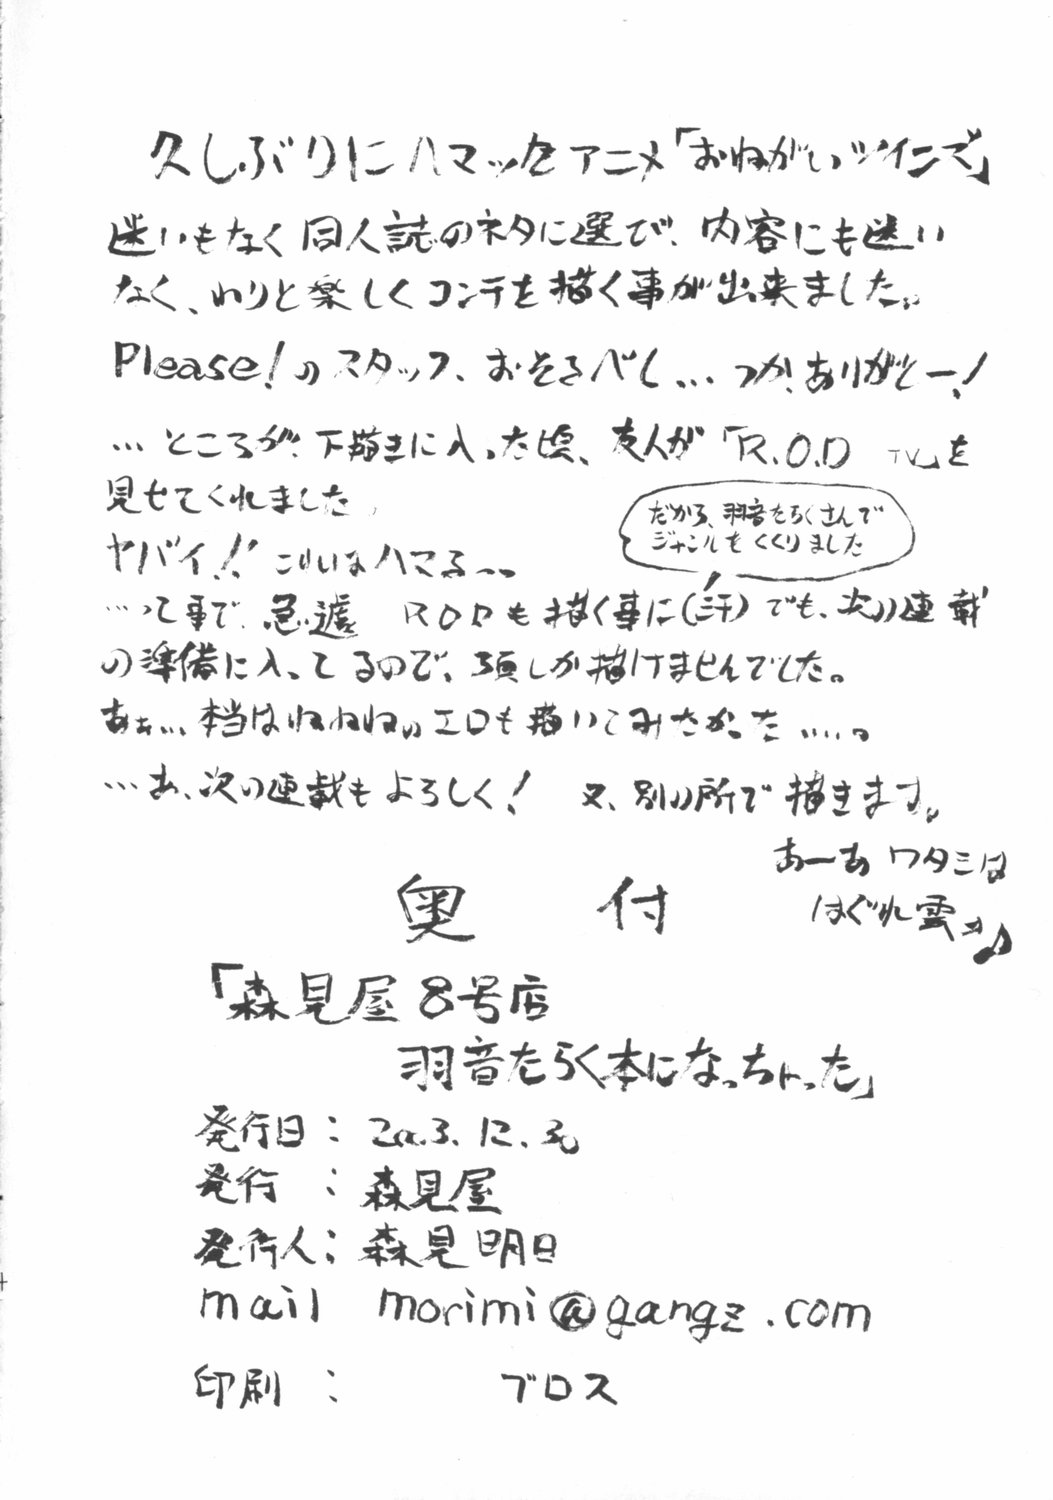 久しぶりにハマったアニメ「おねがいツインズ」
迷いもなく同人誌のネタに選び、内容にも迷い
なく、わりと楽しくコンテを描く事が出来ました。
Please!のスタッフ、おそるべし…つか、ありがとー!
…ところが、下描きに入った頃、友人が「R.O.D TV」を
見せてくれました。
だから、羽音たらくさんで
ジャンルをくくりました
ヤバイ!! こりゃハマる~。
…って事で、急遽 RODも描く事に(汗)でも、次の連載
の準備に入ってるので、3頁しか描けませんでした。
あぁ…本当はねねねのエロも描いてみたかった……。
…あ、次の連載もよろしく! 又、別の所で描きます。
あーあ ワタシは
はぐれ雲ォ♪
奥付
「森見屋8号店
羽音たらく本になっちゃった」
発行日:2003.12.30
発行 :森見屋
発行人:森見明日
mail morimi@gangz.com
印刷 : ブロス